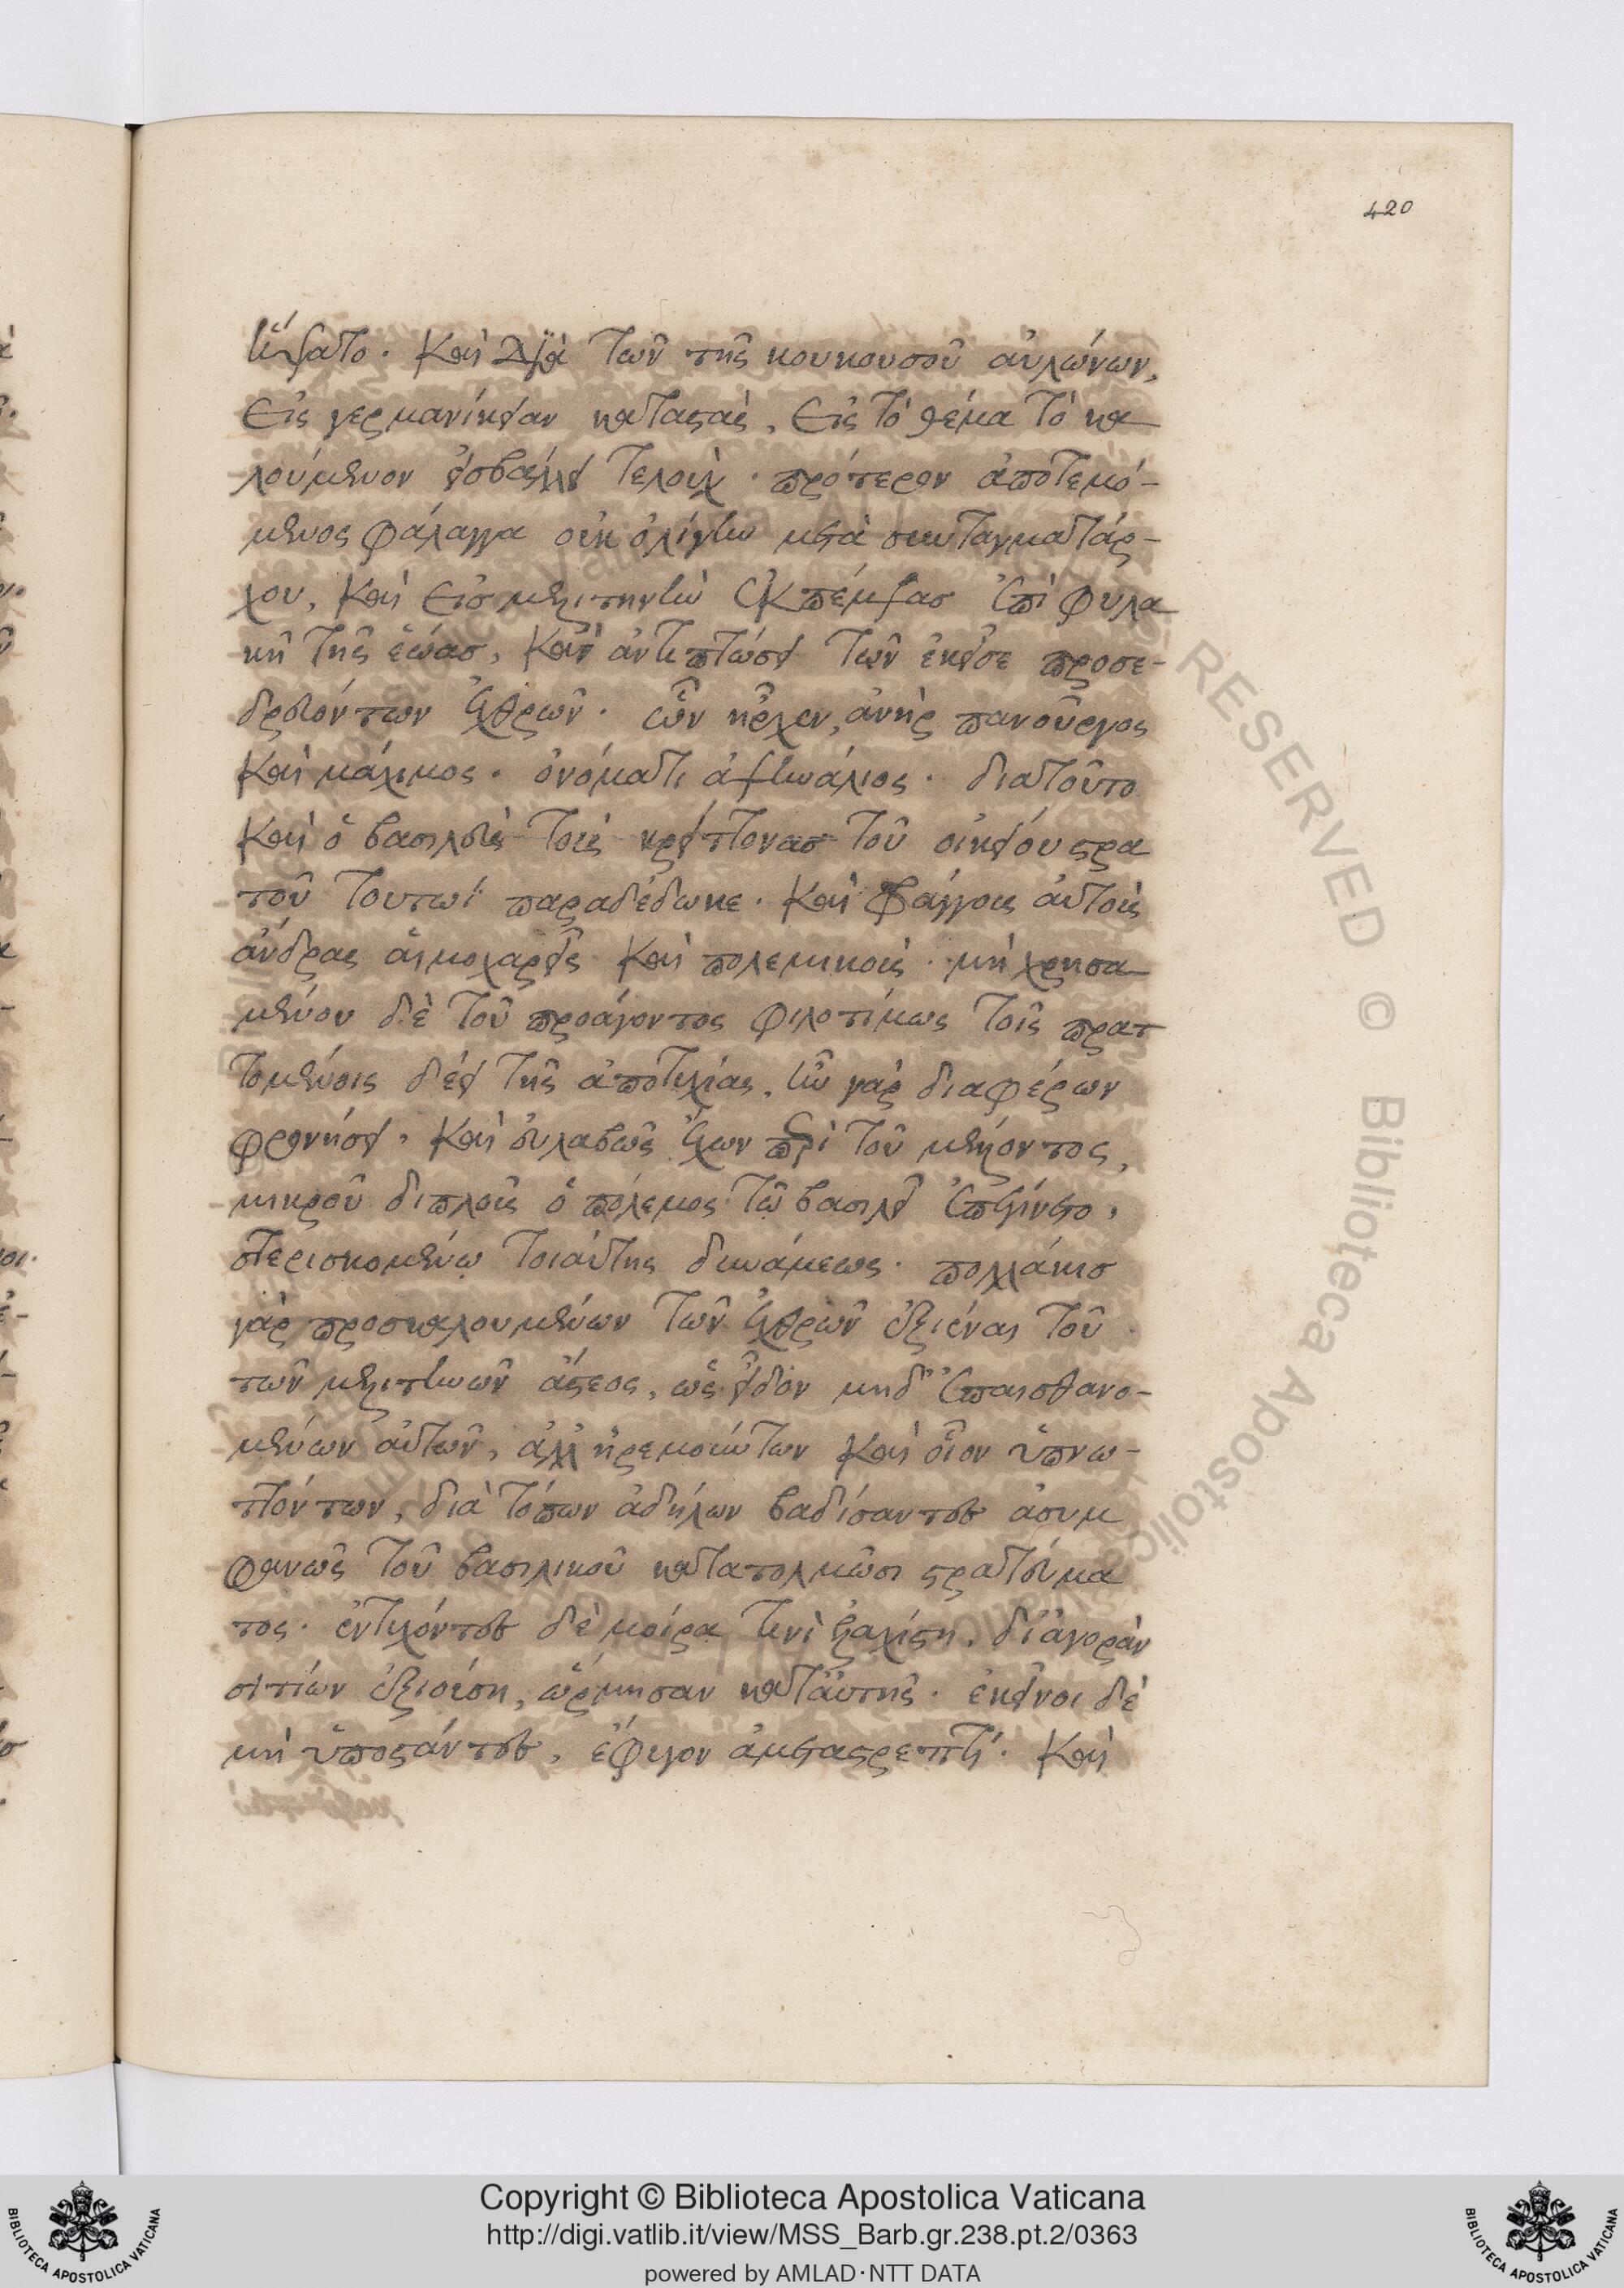 420
ἥψατο. καὶ διὰ τῶν τῆς κουκουσοῦ αὐλώνων,
εἰς γερμανίκειαν καταστὰς, εἰς τὸ θέμα τὸ κα
λούμενον εἰσβάλλει τελούχ. πρότερον ἀποτεμό-
μενος φάλαγγα οὐκ ὀλίγην μετὰ συνταγματάρ-
χου, καὶ εἰσ μελιτηνὴν ἐκπέμψασ ἐπὶ φυλα
κῆ τῆς ἑώασ, καὶ ἀντιπτώσει τῶν ἐκεῖσε προσε-
δρευόντων ἐχθρῶν. ὧν ἦρχεν, ἀνὴρ πανοῦργος
καὶ μάχιμος. ὀνόματι ἀψινάλιος. διατοῦτο
καὶ ὁ βασιλεὺς τοὺς κρείττονασ τοῦ οἰκείου στρα
τοῦ τουτωῒ παραδέδωκε. καὶ φράγγους αὐτοὺς
ἄνδρας αἱμοχαρεῖς καὶ πολεμικούς. μὴ χρησα
μένου δὲ τοῦ προάγοντος φιλοτίμως τοῖς πρατ
τομένοις δέει τῆς ἀποτυχίας, ἦν γὰρ διαφέρων
φρονήσει, καὶ εὐλαβῶς ἔχων περὶ τοῦ μέλλοντος,
μικροῦ διπλοῦς ὁ πόλεμος τῶ βασιλεῖ ἐπεγίνετο,
στερισκομένω τοιαύτης δυνάμεως. πολλάκισ
γὰρ προσκαλουμένων τῶν ἐχθρῶν ἐξιέναι τοῦ
τῶν μελιτηνῶν ἄστεος, ὡς εἶδον μηδ' ἐπαισθανο-
μένων αὐτῶν, ἀλλ' ἠρεμούντων καὶ οἷον ὑπνω-
ττόντων, διὰ τόπων ἀδήλων βαδίσαντες ἀσυμ
φανῶς τοῦ βασιλικοῦ κατατολμῶσι στρατεύμα
τος. ἐντυχόντες δὲ μοίρα τινὶ ἐλαχίστη, δι' ἀγορὰν
σιτίων ἐξιούση, ὥρμησαν κατ' αὐτῆς. ἐκεῖνοι δὲ
μὴ ὑποστάντες, ἔφυγον ἀμεταστρεπτί. καὶ
Copyright © Biblioteca Apostolica Vaticana
http://digi.vatlib.it/view/MSS_Barb.gr.238.pt.2/0363
powered by AMLAD·NTT DATA
BIBLIOTECA APOSTOLICA VATICANA
BIBLIOTECA APOSTOLICA VATICANA